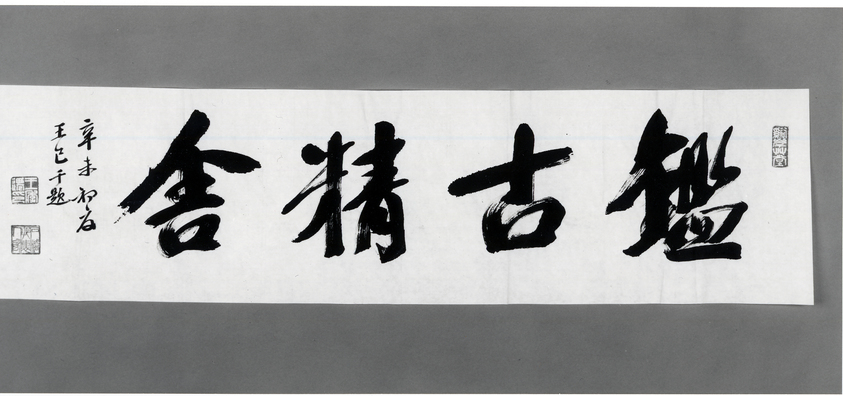 鑑古精舍
辛未初夏
王己千題